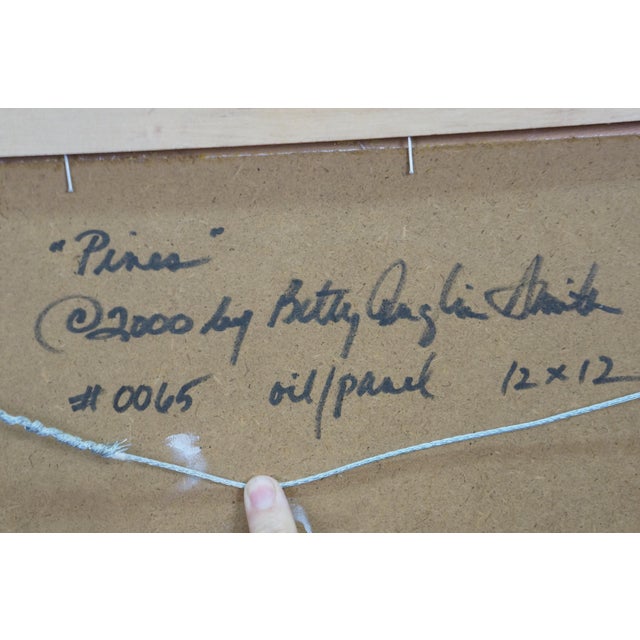 "Pines"
©2000 by Betty Anglin Smith
#0065 oil/panel 12x12